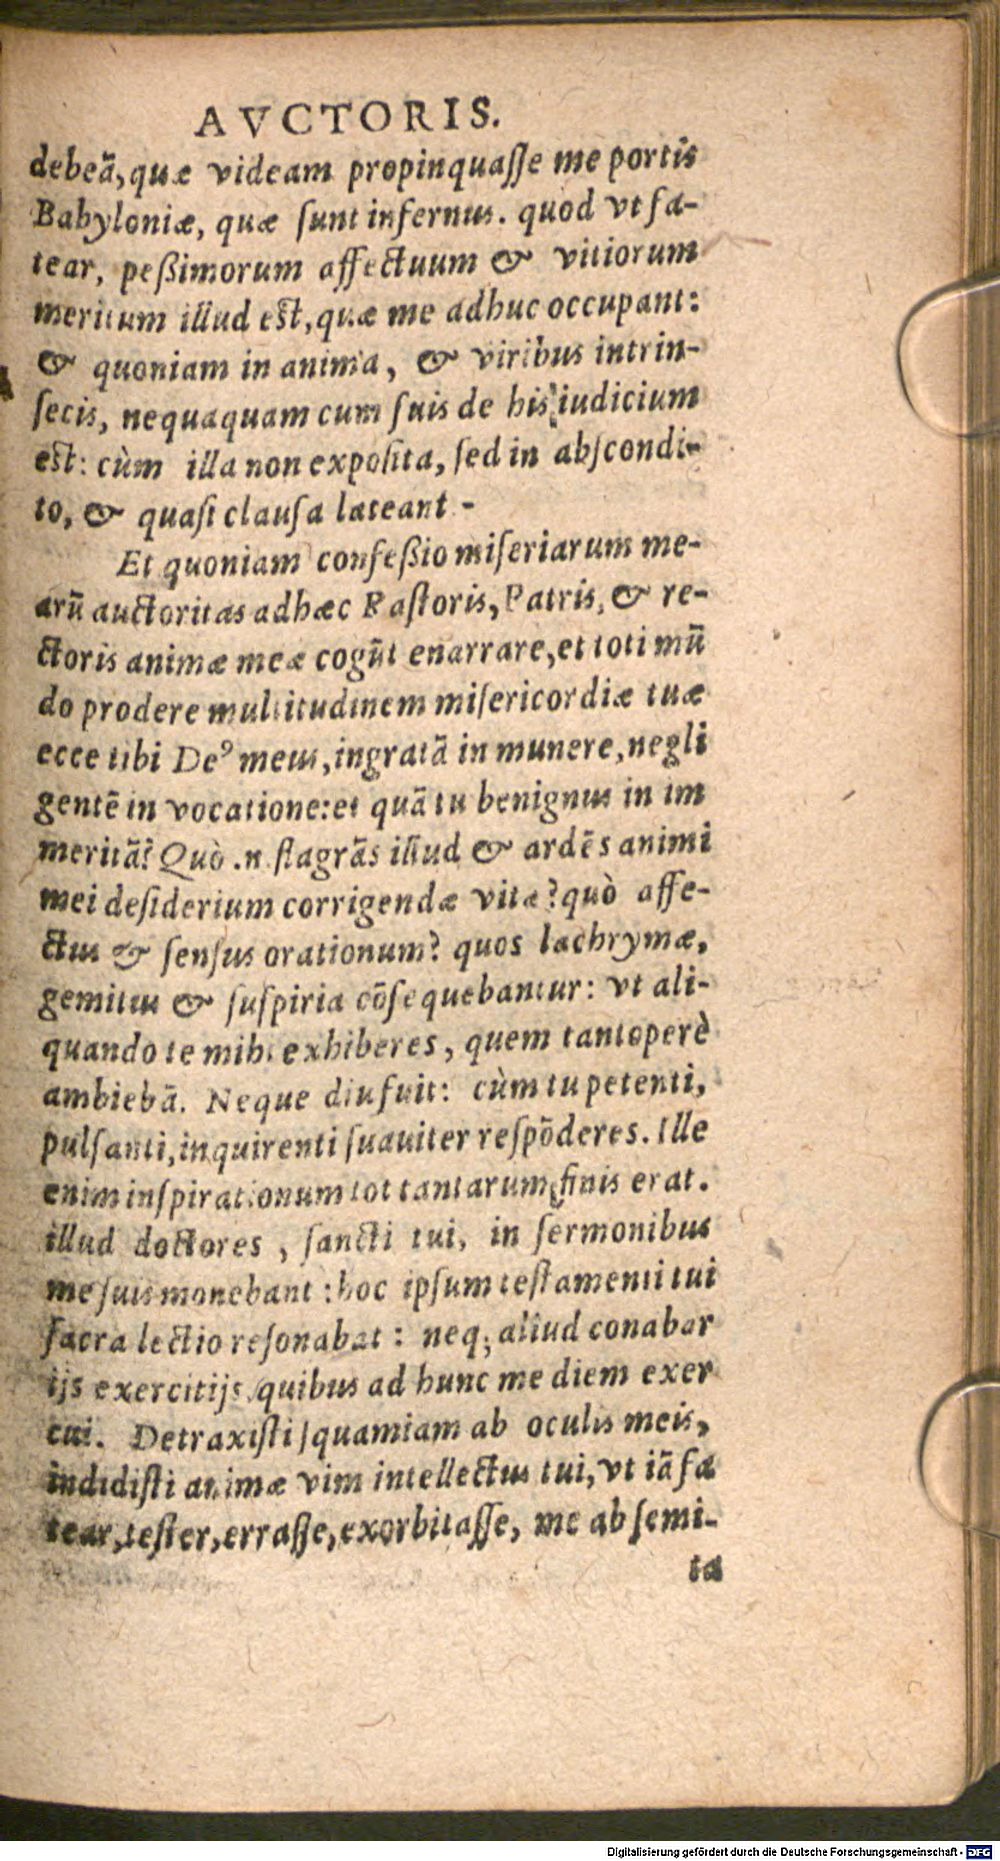 AVCTORIS.
debeã, quæ videam propinquaſſe me portis
Babyloniæ, quæ ſunt infernus. quod vt fa-
tear, peßimorum affectuum & vitiorum
meritum illud est, quæ me adhuc occupant:
& quoniam in anima, & viribus intrin-
ſecis, nequaquam cum ſuis de his iudicium
est: cùm illa non expoſita, ſed in abſcondi-
to, & quaſi clauſa lateant -
Et quoniam confeßio miſeriarum me-
arũ auctoritas adhæc Paſtoris, Patris, & re-
ctoris animæ meæ cogũt enarrare, et toti mũ
do prodere multitudinem miſericordiæ tuæ
ecce tibi Deꝰ meus, ingratã in munere, negli
gentẽ in vocatione: et quã tu benignus in im
meritã? Quò .n. flagrãs illud & ardẽs animi
mei deſiderium corrigendæ vitæ? quò affe-
ctus & ſenſus orationum? quos lachrymæ,
gemitus & ſuſpiria cõſequebantur: vt ali-
quando te mihi exhiberes, quem tantoperè
ambiebã. Neque diu fuit: cùm tu petenti,
pulſanti, inquirenti ſuauiter reſpõderes. Ille
enim inſpirationum tot tantarum finis erat.
illud doctores, ſancti tui, in ſermonibus
me ſuis monebant: hoc ipſum teſtamenti tui
ſacra lectio reſonabat: neq; aliud conabar
ijs exercitijs, quibus ad hunc me diem exer
cui. Detraxiſti ſquamiam ab oculis meis,
indidiſti animæ vim intellectus tui, vt iã fa
tear, teſter, erraſſe, exorbitaſſe, me ab ſemi-
ta
Digitalisierung gefördert durch die Deutsche Forschungsgemeinschaft - DFG